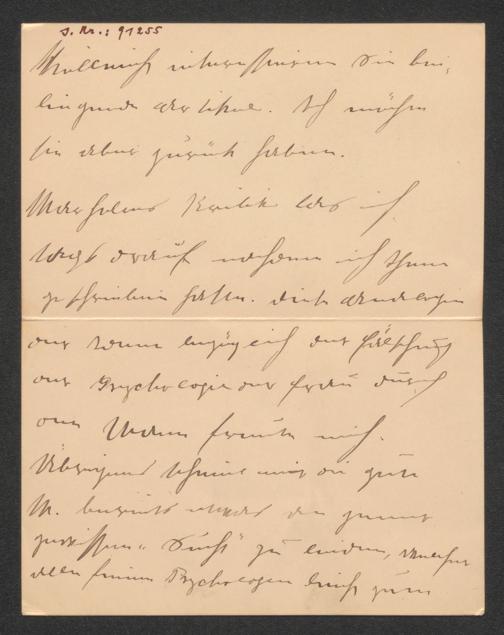 J. Nr.: 91255
Vielleicht interessieren Sie bei-
liegende Artikel. Ich möchte
sie aber zurück haben.
Marholms Kritik las ich
tags darauf nachdem ich Ihnen
geschrieben hatte. Diese Analogien
der bezüglich der Fälschung
der Psychologie der Frau durch
den Mann freute mich.
Übrigens scheint mir die gute
M. bereits etwas an jener
gewissen „Sucht" zu leiden, welcher
allen feinen Psychologen leicht zum